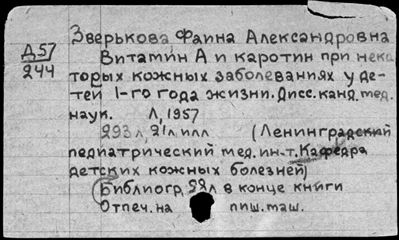 Зверькова Фаина Александровна
Д57
244
Витамин А и каротин при неко
торых кожных заболеваниях у де-
тей 1-го года жизни. Дисс. канд. мед.
наук. Л, 1957
293 л, 21 л илл (Ленинградский
педиатрический мед. ин-т. Кафедра
детских кожных болезней)
Библиогр. 28 л в конце книги
Отпеч. на пиш. маш.